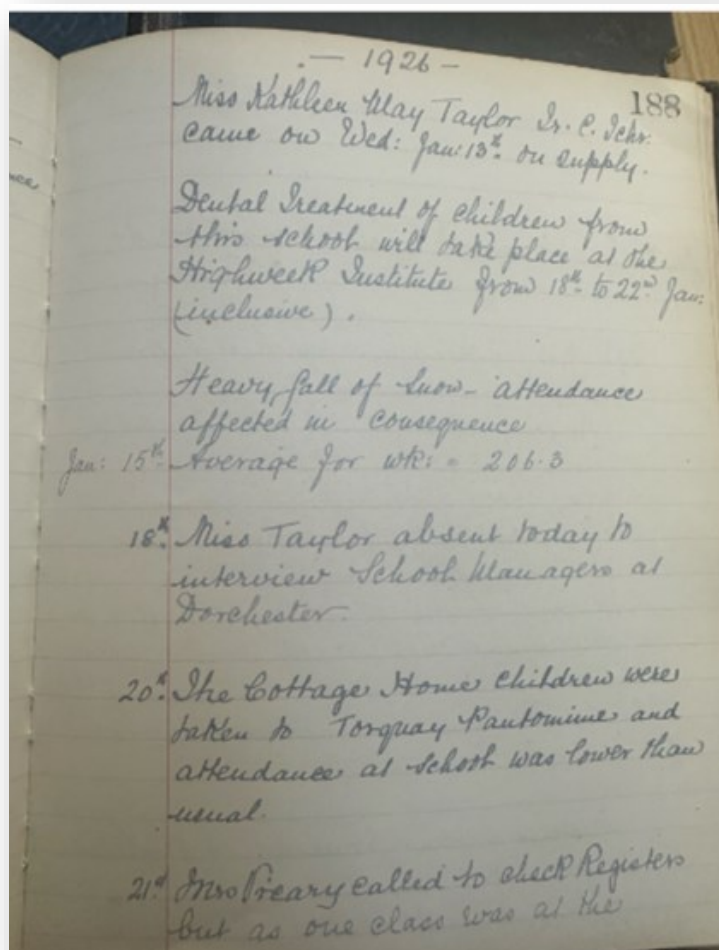 — 1926 —
188
Miss Kathleen May Taylor Tr. C. Tchr.
came on Wed: Jan: 13th on supply.
Dental Treatment of children from
this school will take place at the
Highweek Institute from 18th to 22nd Jan:
(inclusive).
Heavy fall of snow – attendance
affected in consequence
Jan: 15th Average for wk: = 206.3
18th Miss Taylor absent today to
interview School Managers at
Dorchester.
20th The Cottage Home children were
taken to Torquay Pantomime and
attendance at school was lower than
usual.
21st called to check Registers
but as one class was at the